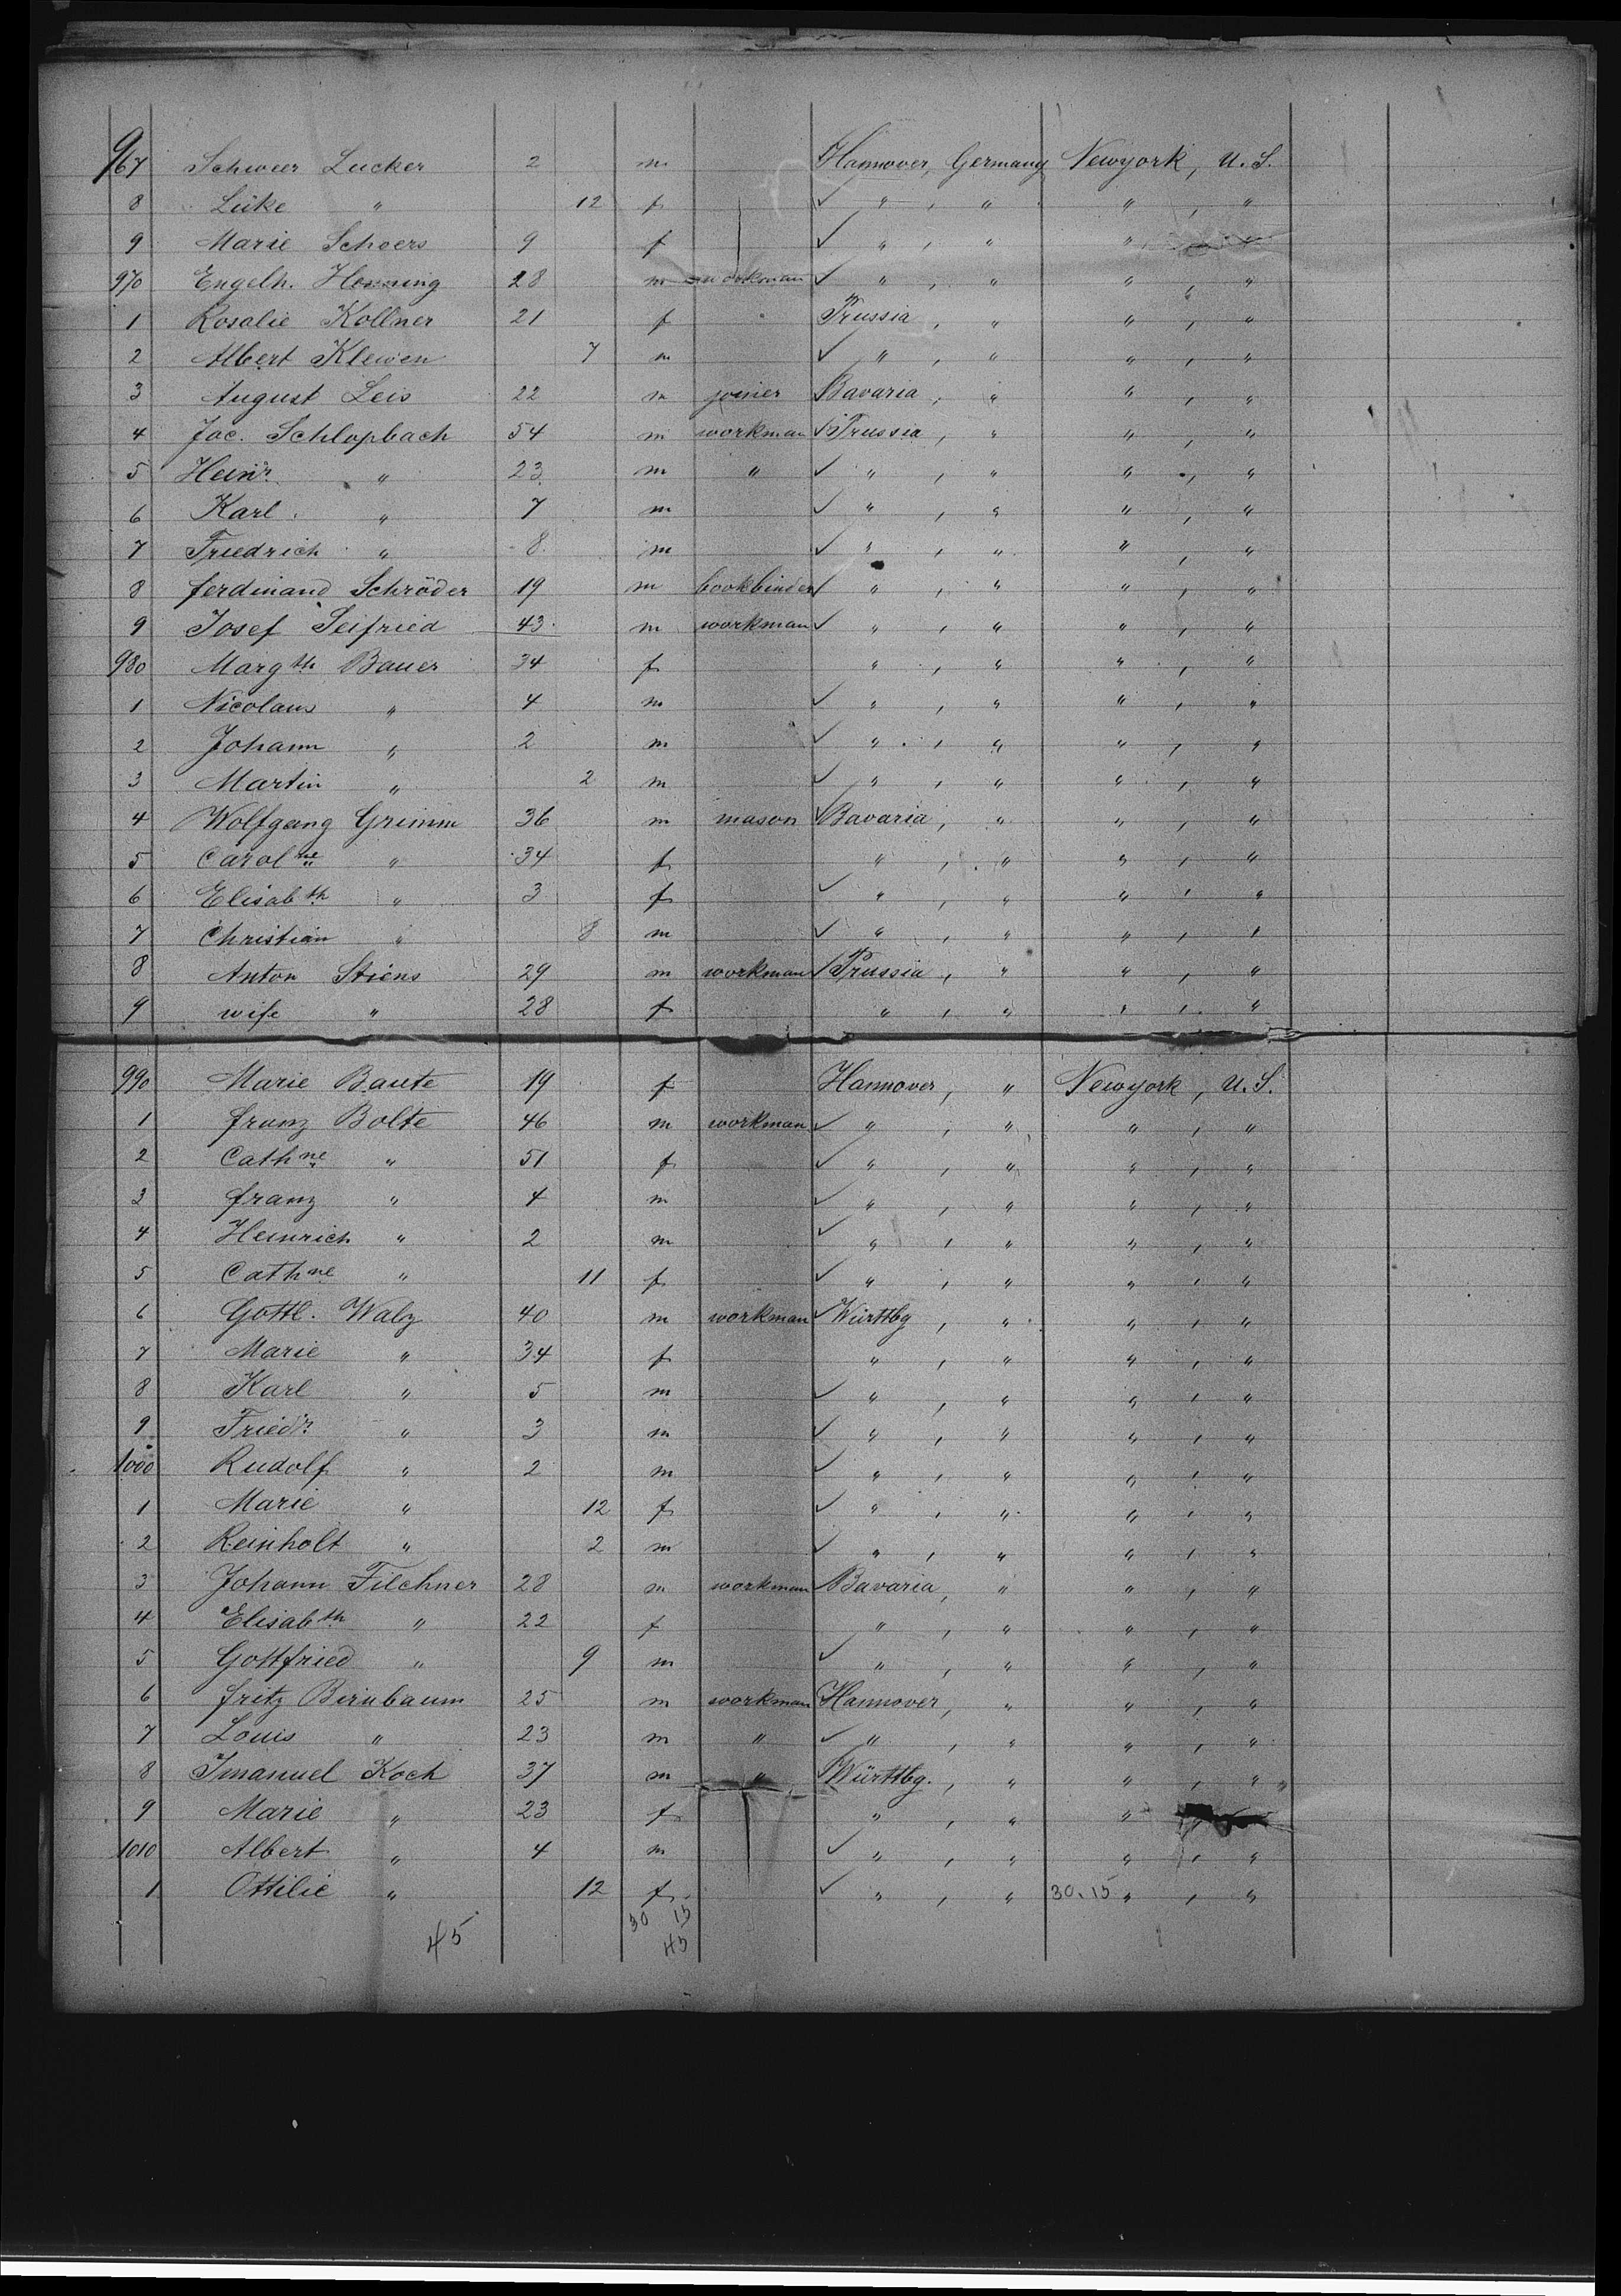 967 Schweer Lucker 2 m Hannover, Germany Newyork, U.S.
8 Lüke " 12 f ✓ " , " " , "
9 Marie Schoers 9 f ✓ " , " " , "
970 Engelh. Henning 28 m workman ✓ " , " " , "
1 Rosalie Kollner 21 f Prussia , " " , "
2 Albert Klewen 7 m ✓ " , " " , "
3 August Leis 22 m joiner Bavaria , " " , "
4 Jac. Schlopbach 54 m workman ✓ Prussia , " " , "
5 Heinr. " 23 m " ✓ " , " " , "
6 Karl " 7 m ✓ " , " " , "
7 Friedrich " 8 m ✓ " , " " , "
8 ferdinand Schröder 19 m bookbinder ✓ " , " " , "
9 Josef Seifried 43 m workman ✓ " , " " , "
980 Margth Bauer 34 f " , " " , "
1 Nicolaus " 4 m ✓ " , " " , "
2 Johann " 2 m ✓ " , " " , "
3 Martin " 2 m ✓ " , " " , "
4 Wolfgang Grimm 36 m mason ✓ Bavaria , " " , "
5 Carolne " 34 f " , " " , "
6 Elisabth " 3 f ✓ " , " " , "
7 Christian " 8 m ✓ " , " " , "
8 Anton Stiens 29 m workman ✓ Prussia , " " , "
9 wife " 28 f " , " " , "
990 Marie Baute 19 f Hannover , " Newyork, U.S.
1 franz Bolte 46 m workman ✓ " , " " , "
2 Cathne " 51 f ✓ " , " " , "
3 franz " 4 m ✓ " , " " , "
4 Heinrich " 2 m ✓ " , " " , "
5 Cathne " 11 f ✓ " , " " , "
6 Gottl. Walz 40 m workman ✓ Württbg , " " , "
7 Marie " 34 f " , " " , "
8 Karl " 5 m ✓ " , " " , "
9 Friedr. " 3 m ✓ " , " " , "
1000 Rudolf " 2 m ✓ " , " " , "
1 Marie " 12 f ✓ " , " " , "
2 Reinholt " 2 m ✓ " , " " , "
3 Johann Filchner 28 m workman Bavaria , " " , "
4 Elisabth " 22 f " , " " , "
5 Gottfried " 9 m ✓ " , " " , "
6 fritz Birnbaum 25 m workman Hannover , " " , "
7 Louis " 23 m " ✓ " , " " , "
8 Imanuel Koch 37 m " ✓ Württbg. , " " , "
9 Marie " 23 f " , " "
1010 Albert " 4 m ✓ " , " " , "
1 Ottilie " 12 f ✓ " , " 30.15 " , "
30 15
45 45